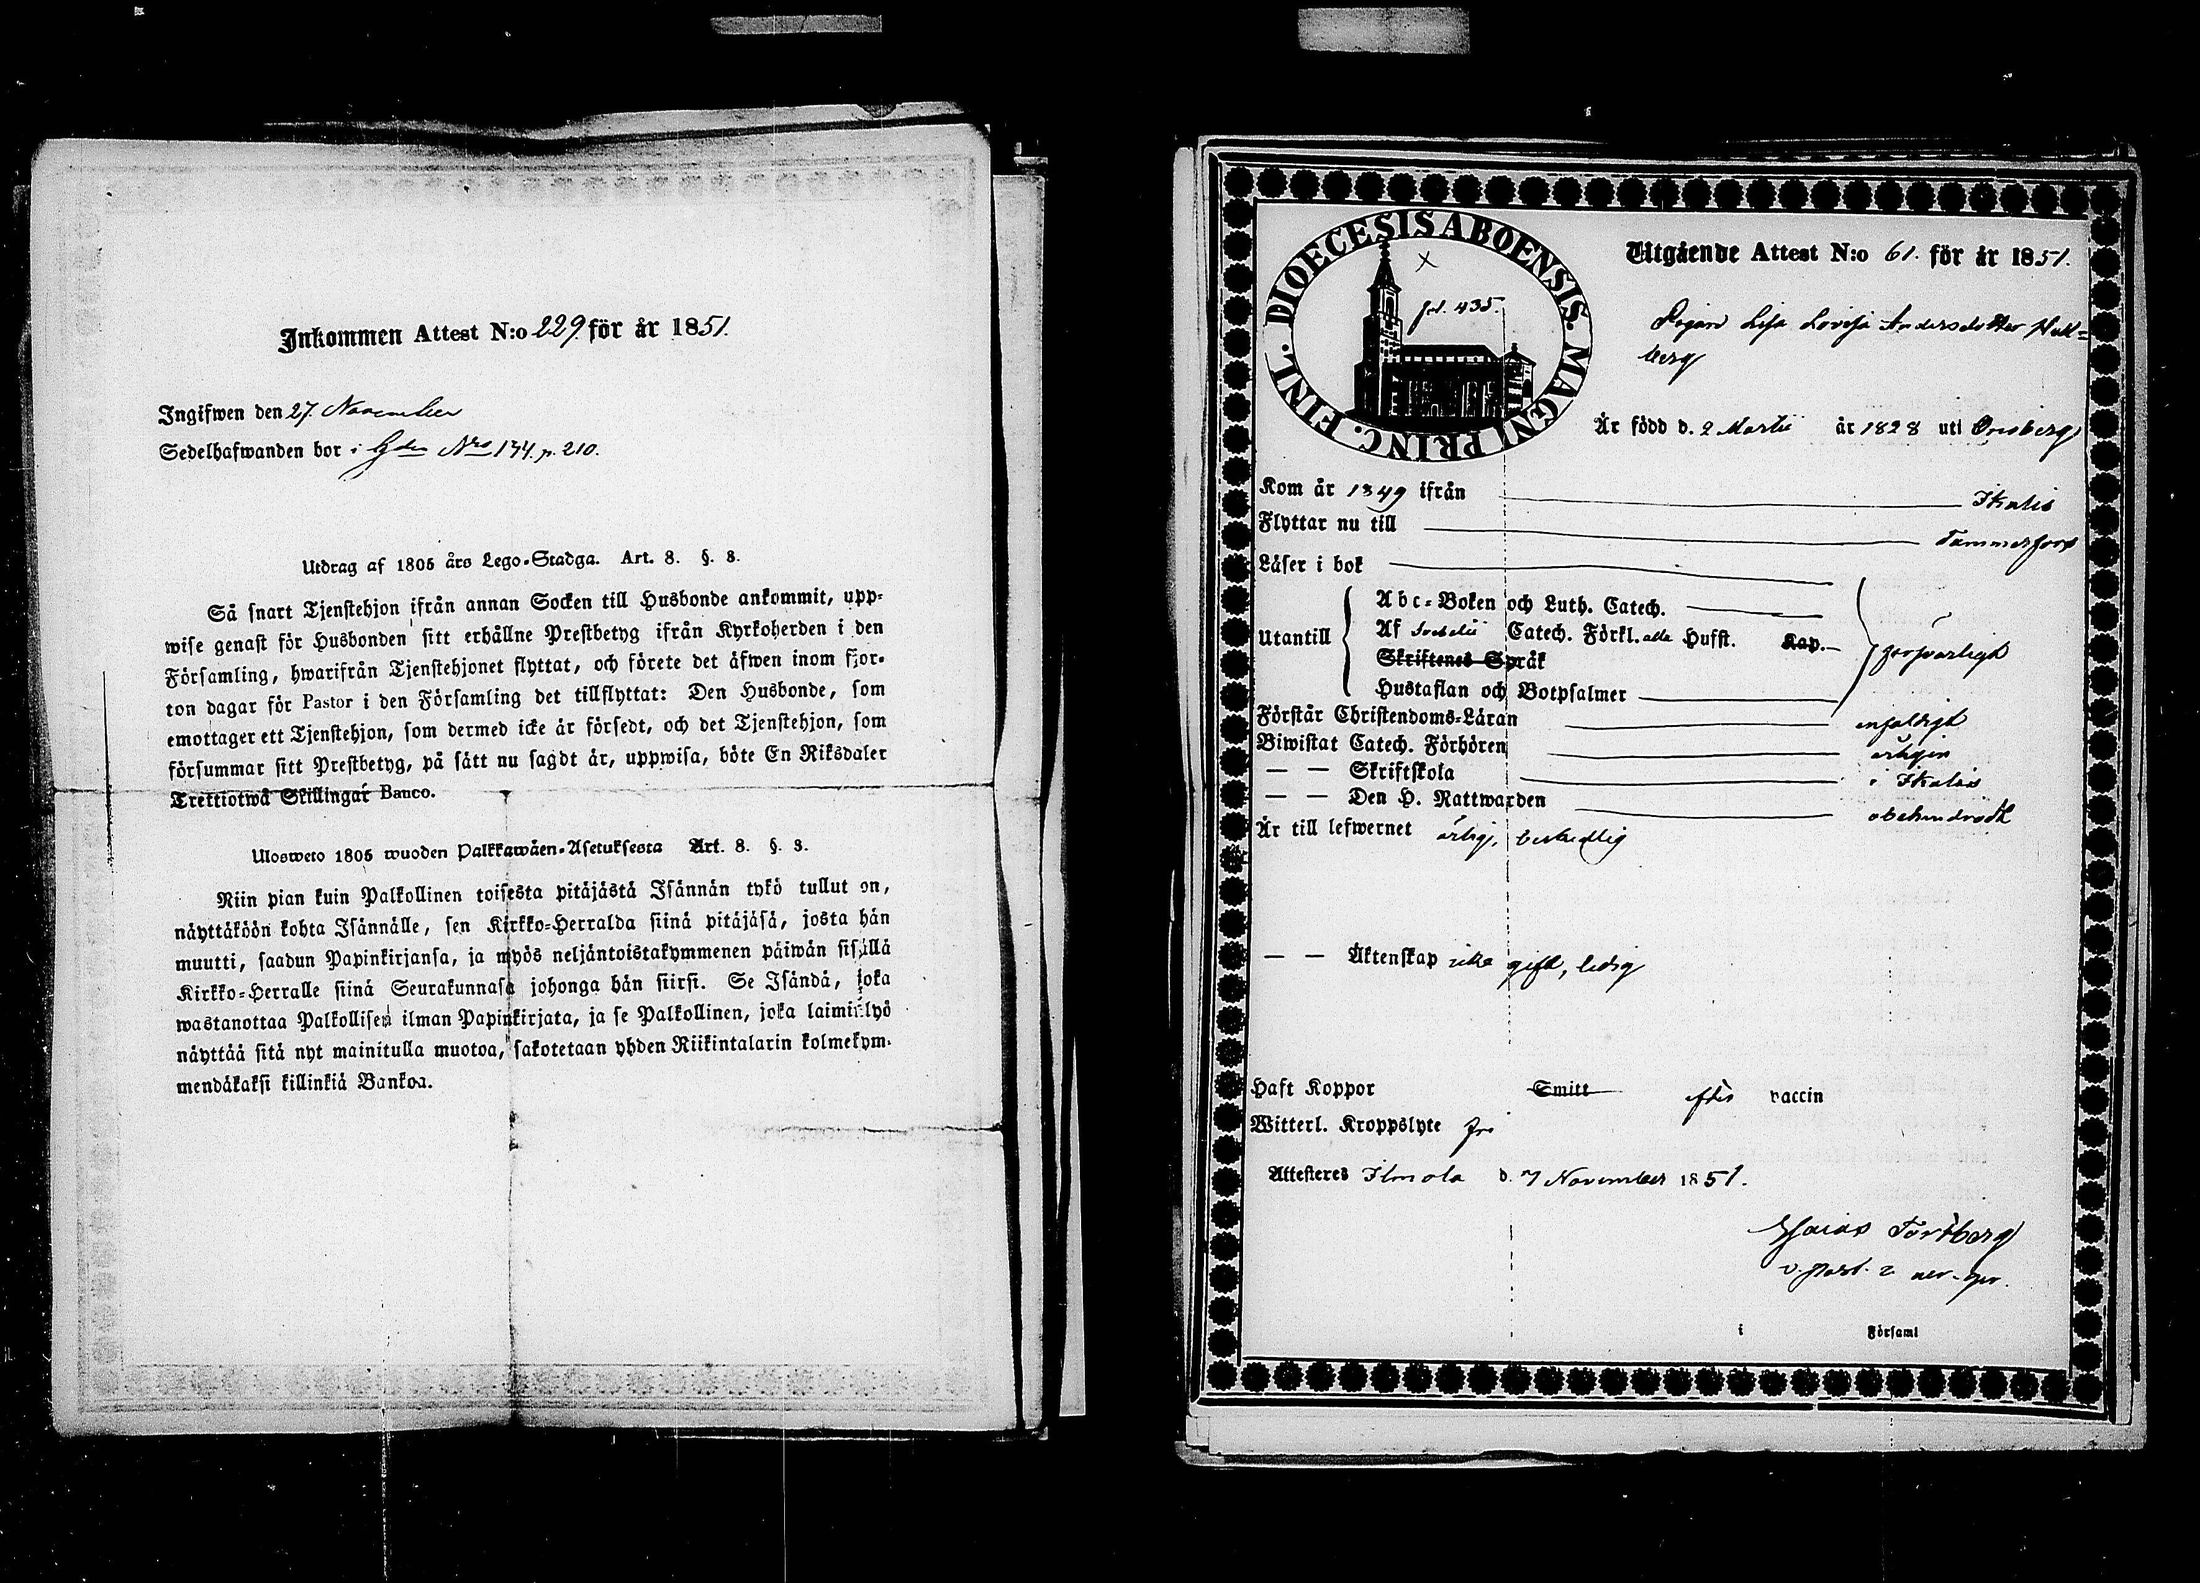 Inkommen Attest N:o 229. för år 1851.
Ingifwen den 27. November
Sedelhafwanden bor i Gden Nro 134. p. 210.
Utdrag af 1805 års Lego-Stadga. Art. 8. §. 8.
Så snart Tjenstehjon ifrån annan Socken till Husbonde ankommit, upp-
wise genast för Husbonden sitt erhållne Prestbetyg ifrån Kyrkoherden i den
Församling, hwarifrån Tjenstehjonet flyttat, och förete det äfwen inom fjor-
ton dagar för Pastor i den Församling det tillflyttat: Den Husbonde, som
emottager ett Tjenstehjon, som dermed icke är försedt, och det Tjenstehjon, som
försummar sitt Prestbetyg, på sätt nu sagdt är, uppwisa, böte En Riksdaler
Trettiotwå Skillingar Banco.
Ulosweto 1805 wuoden Palkkawäen-Asetuksesta Art. 8. §. 8.
Niin pian kuin Palkollinen toisesta pitäjästä Isännän tykö tullut on,
näyttäköön kohta Isännälle, sen Kirkko-Herralda siinä pitäjäsä, josta hän
muutti, saadun Papinkirjansa, ja myös neljäntoistakymmenen päiwän sisällä
Kirkko-Herralle siinä Seurakunnasa johonga hän siirsi. Se Isändä, joka
wastanottaa Palkollisen ilman Papinkirjata, ja se Palkollinen, joka laiminlyö
näyttää sitä nyt mainitulla muotoa, sakotetaan yhden Riikintalarin kolmekym-
mendäkaksi killinkiä Bankoa.
DIOECESIS ABOENSIS. MAGNI PRINC. FINL.
X
fol. 435.
Utgående Attest N:o 61. för år 1851.
Pigan Lisa Lovisa Andersdotter
berg
Är född d. 2 Martii år 1828 uti Onsberg
Kom år 1849 ifrån Ikalis
Flyttar nu till Tammerfors
Läser i bok
Utantill
Abc-Boken och Luth. Catech.
Af Svebelii Catech. Förkl. alla Hufst. Kap.
Skriftenes Språk
försvarligt
Hustaflan och Botpsalmer
Förstår Christendoms-Läran enfaldigt
Biwistat Catech. Förhören årligen
— — Skriftskola i Ikalis
— — Den H. Nattwarden obehindradt
Är till lefwernet ärlig, beskedlig
— — Äktenskap icke gift, ledig
Haft Koppor Smitt efter vaccin
Witterl. Kroppslyte fri
Attesteres Ilmola d. 7 November 1851.
Esaias Fortberg
v. past.
i Församl